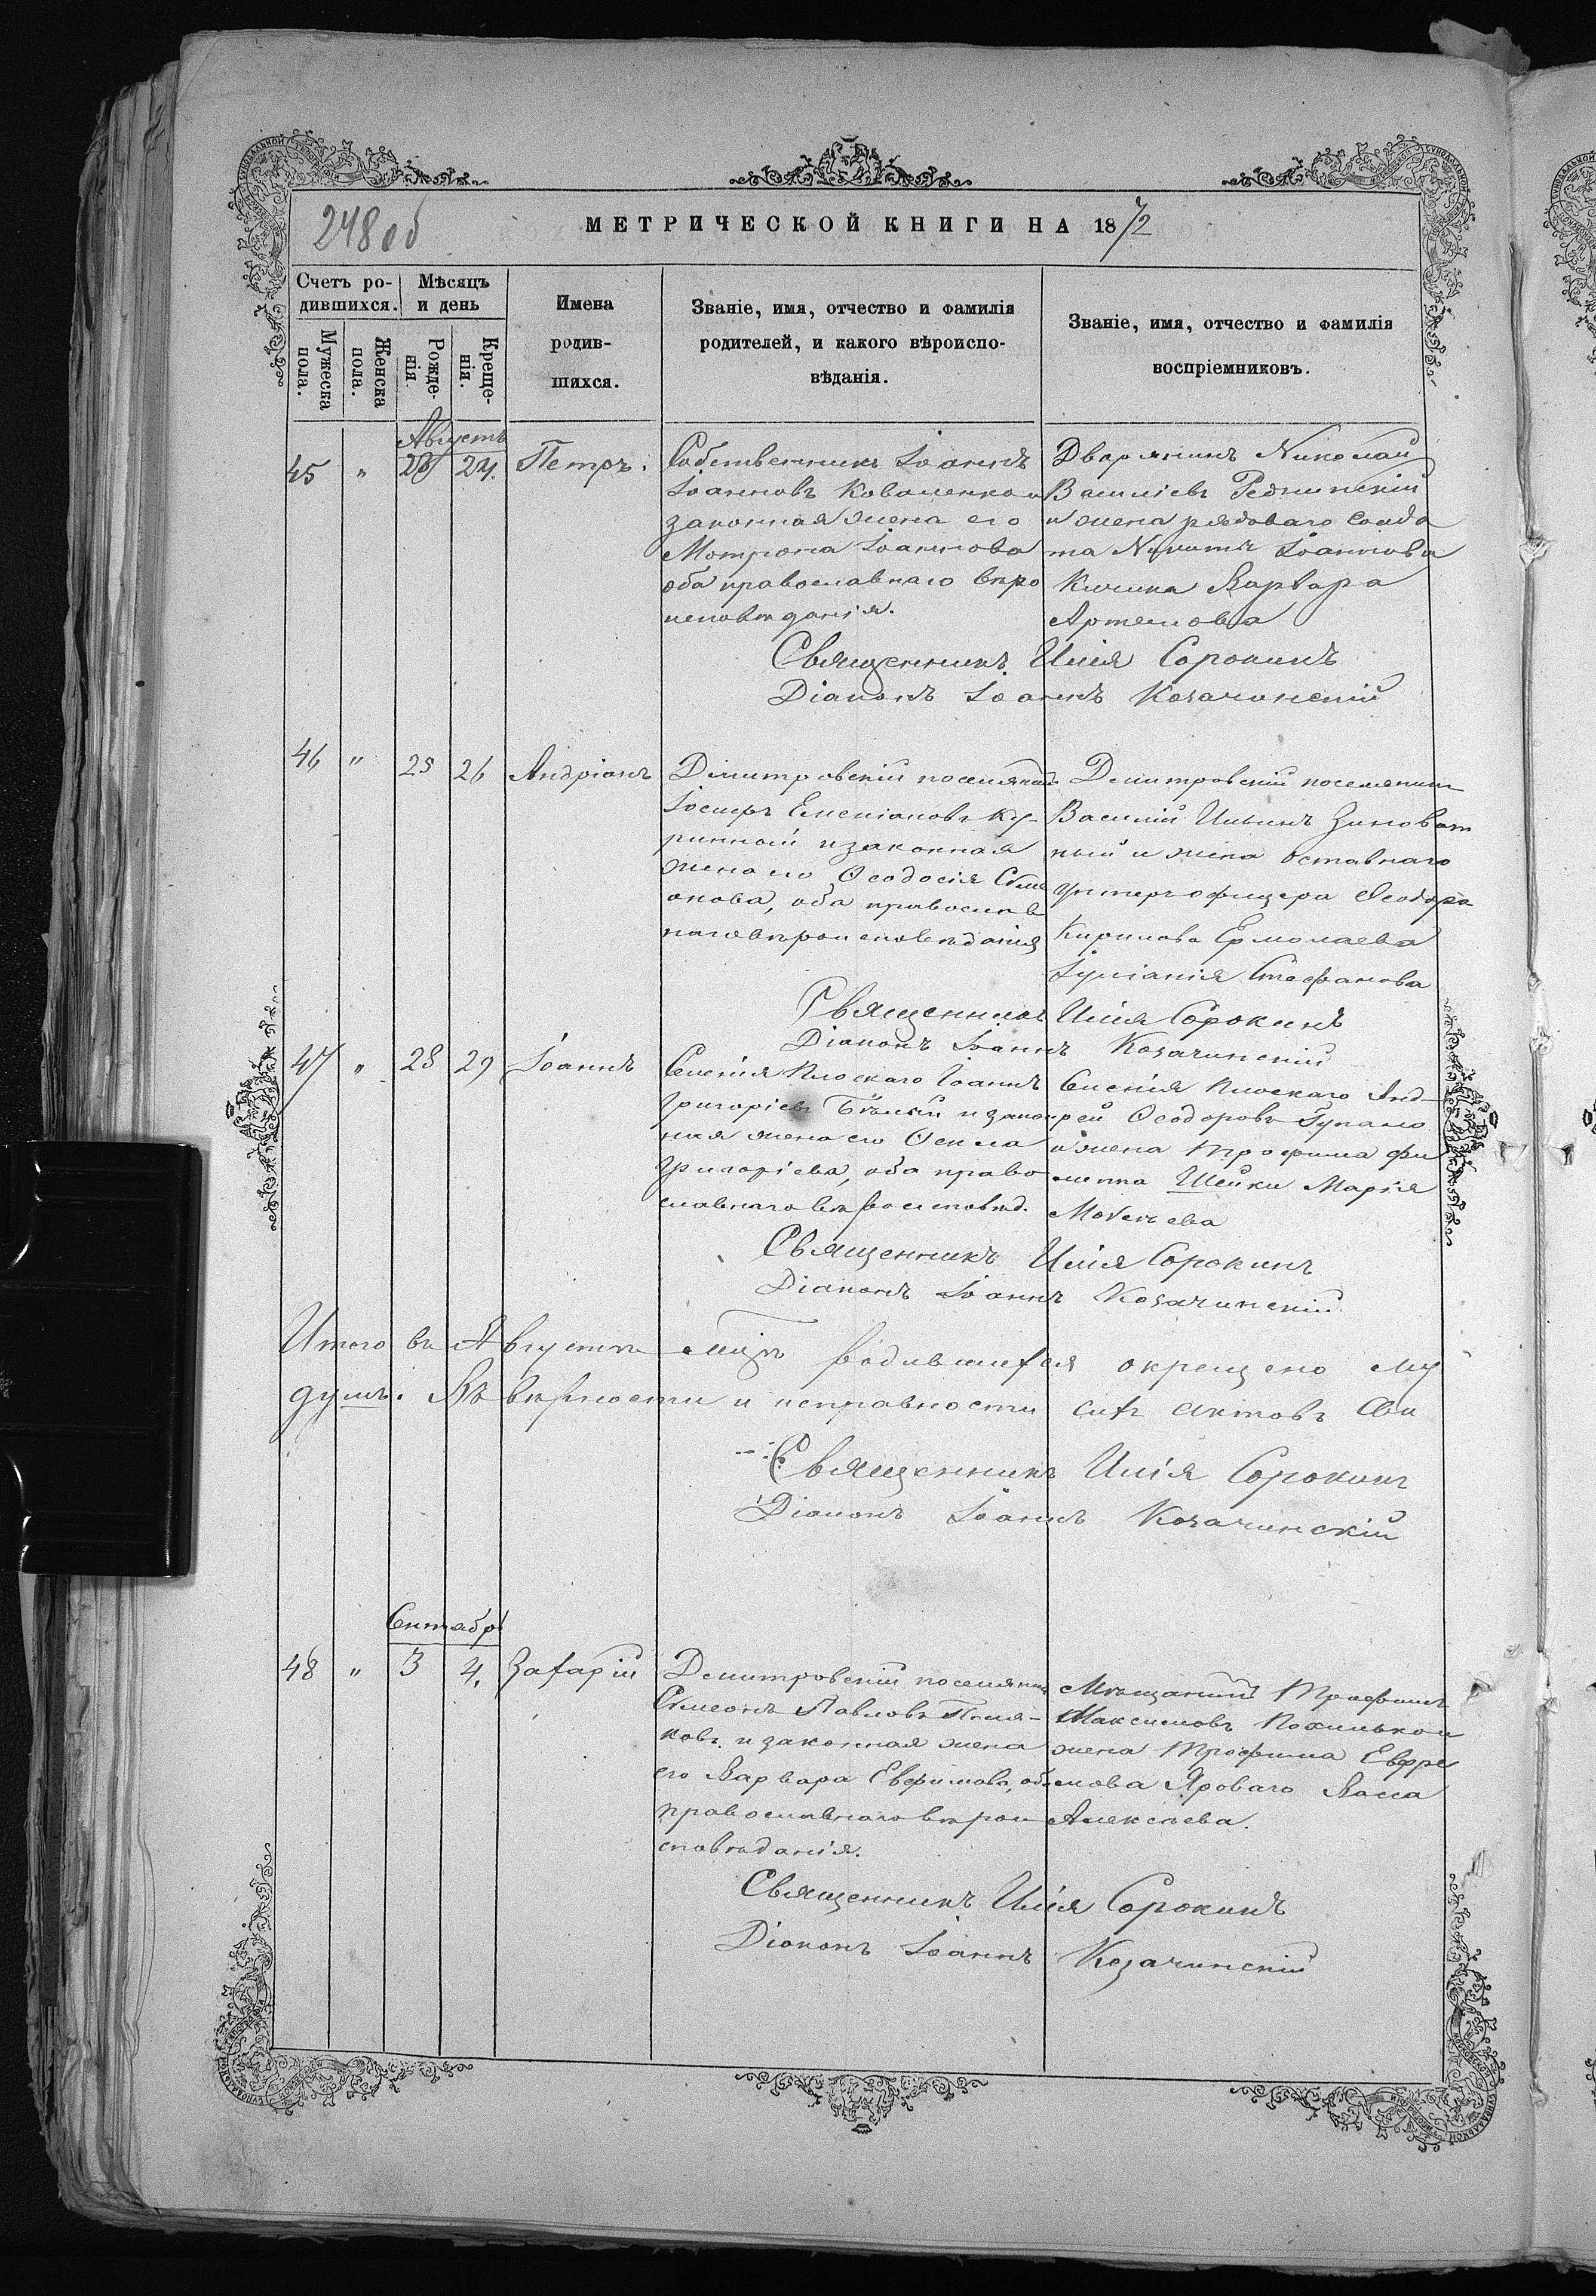 248 об
МЕТРИЧЕСКОЙ КНИГИ НА 1872
Счетъ ро-
дившихся.
Мѣсяцъ
и день
Мужеска
пола.
Женска
пола.
Рожде-
нія.
Креще-
нія.
Имена
родив-
шихся.
Званіе, имя, отчество и фамилія
родителей, и какого вѣроиспо-
вѣданія.
Званіе, имя, отчество и фамилія
воспріемниковъ.
Августъ
45 " 24. Петръ.
Собственникъ Іоаннъ
Іоанновъ Коваленко и
законная жена его
Мотрона Іоаннова
оба православнаго вѣро
исповѣданія.
Дворянинъ Николай
Василіевъ
и жена рядоваго солда
та Никиты Іоаннова
Варвара
Артемова
Священникъ Илія Сорокинъ
Діаконъ Іоаннъ Козачинскій
46 " 25 26 Андріанъ
Димитровскій поселянинъ
Іосифъ Емеліановъ Ку-
ринной и законная
жена его Ѳеодосія Симе
онова, оба православ
наго вѣроисповѣданія
Димитровскій поселянинъ
Василій Ильинъ Зиноват
ный и жена оставнаго
унтеръ офицера Ѳеодора
Кирилова Ермолаева
Іуліанія Стефанова
Священникъ Илія Сорокинъ
Діаконъ Іоаннъ Козачинскій
47 " 28 29 Іоаннъ
Селенія Плоскаго Іоаннъ
Григоріевъ и закон
ная жена его
Григоріева, оба право
славнаго вѣроисповѣд.
Селенія Плоскаго Анд-
рей Ѳеодоровъ
и жена Трофима Фи
липпа Шейки Марія
Мокѣева
Священникъ Илія Сорокинъ
Діаконъ Іоаннъ Козачинскій
Итого въ Августѣ мѣсяцѣ родившихся окрещено му
душъ. Въ вѣрности и исправности сихъ актовъ сви
Священникъ Илія Сорокинъ
Діаконъ Іоаннъ Козачинскій
Сентябрь
48 " 3 4. Захарій
Демитровскій поселянинъ
Симеонъ Павловъ Поля-
ковъ и законная жена
его Варвара Евфимова, оба
православнаго вѣрои
сповѣданія.
Мѣщанинъ Трофимъ
Максимовъ Похилько и
жена Трофима Евфре
мова Яроваго Васса
Алексѣева.
Священникъ Илія Сорокинъ
Діаконъ Іоаннъ Козачинскій